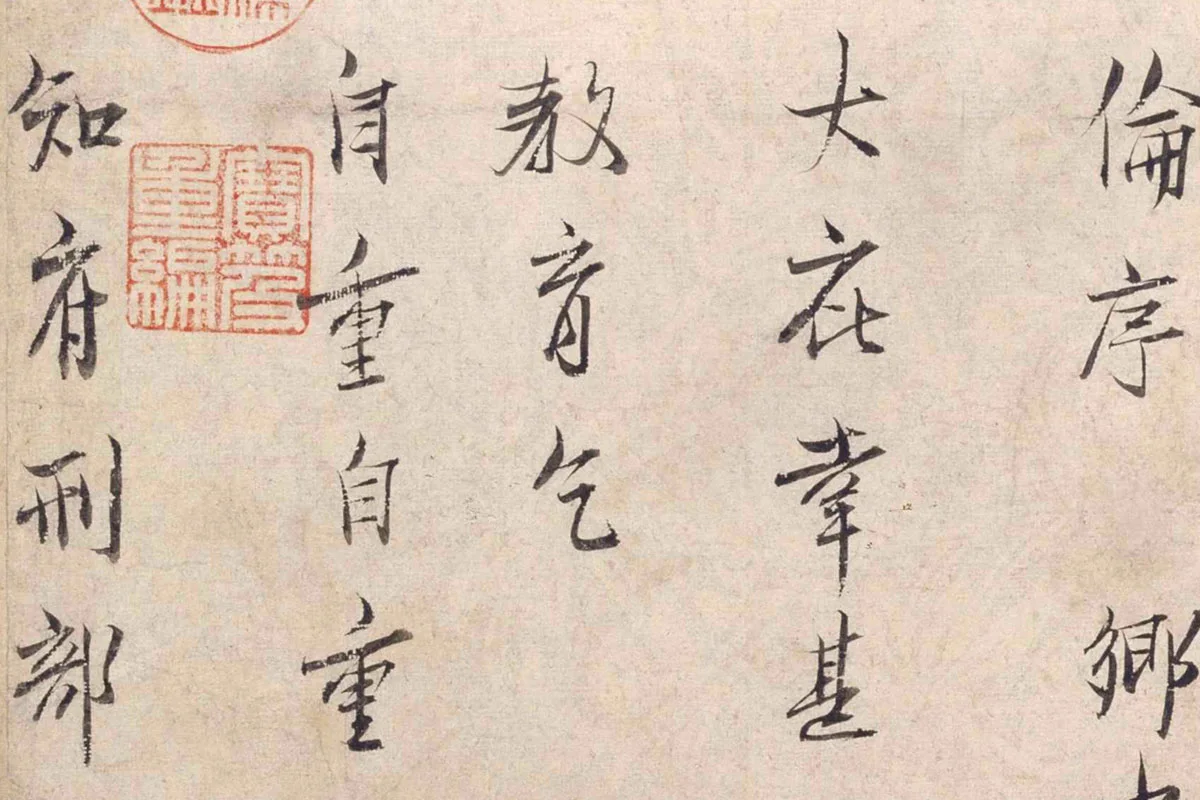 倫序　鄉
大在幸甚
教育乞
自重自重
知府刑部
寶笈重編